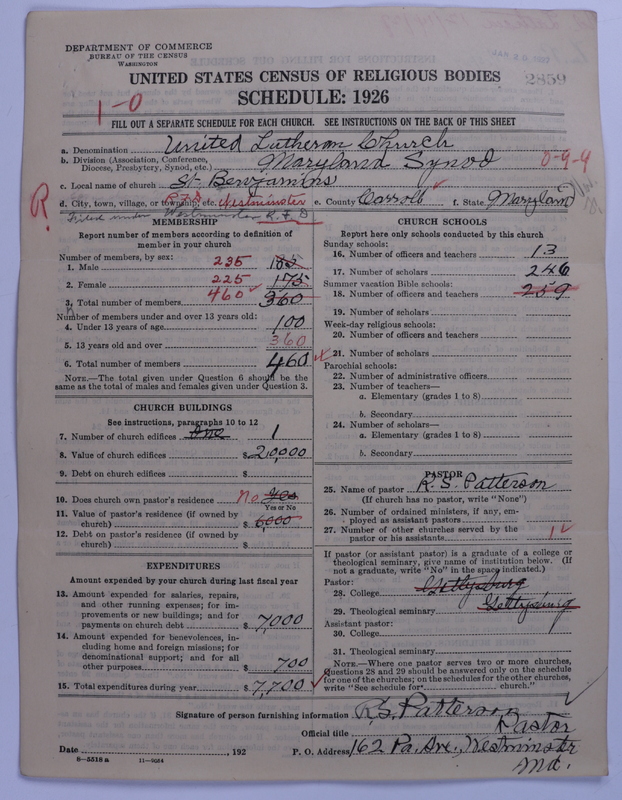 DEPARTMENT OF COMMERCE
BUREAU OF THE CENSUS
WASHINGTON
UNITED STATES CENSUS OF RELIGIOUS BODIES
2859
SCHEDULE: 1926
1-0
FILL OUT A SEPARATE SCHEDULE FOR EACH CHURCH. SEE INSTRUCTIONS ON THE BACK OF THIS SHEET
a. Denomination United Lutheran Church
b. Division (Association, Conference, Diocese, Presbytery, Synod, etc.) Maryland Synod 0-9-9
c. Local name of church St. Benjamins
R.
d. City, town, village, or township, etc. R.F.D. Westminster e. County Carroll f. State Maryland
Filed under Westminster R.F.D
MEMBERSHIP
Report number of members according to definition of member in your church
Number of members, by sex:
1. Male 235 185
2. Female 225 175
3. Total number of members 460 360
Number of members under and over 13 years old:
4. Under 13 years of age 100
5. 13 years old and over 360
6. Total number of members 460
NOTE.—The total given under Question 6 should be the same as the total of males and females given under Question 3.
CHURCH BUILDINGS
See instructions, paragraphs 10 to 12
7. Number of church edifices One 1
8. Value of church edifices $ 20,000
9. Debt on church edifices $
10. Does church own pastor's residence No Yes
Yes or No
11. Value of pastor's residence (if owned by church) $ 6,000
12. Debt on pastor's residence (if owned by church) $
EXPENDITURES
Amount expended by your church during last fiscal year
13. Amount expended for salaries, repairs, and other running expenses; for improvements or new building; and for payments on church debt $ 7,000
14. Amount expended for benevolences, including home and foreign missions; for denominational support; and for all other purposes $ 700
15. Total expenditures during year $ 7,700
CHURCH SCHOOLS
Report here only schools conducted by this church
Sunday schools:
16. Number of officers and teachers 13
17. Number of scholars 246
Summer vacation Bible schools:
18. Number of officers and teachers 259
19. Number of scholars
Week-day religious schools:
20. Number of officers and teachers
21. Number of scholars
Parochial schools:
22. Number of administrative officers
23. Number of teachers—
a. Elementary (grades 1 to 8)
b. Secondary
24. Number of scholars—
a. Elementary (grades 1 to 8)
b. Secondary
PASTOR
25. Name of pastor R. S. Patterson
(If church has no pastor, write "None")
26. Number of ordained ministers, if any, employed as assistant pastors
27. Number of other churches served by the pastor or his assistants 1
If pastor (or assistant pastor) is a graduate of a college or theological seminary, give name of institution below. (If not a graduate, write "No" in the space indicated.)
Pastor:
28. College Gettysburg
29. Theological seminary Gettysburg
Assistant pastor:
30. College
31. Theological seminary
NOTE.—Where one pastor serves two or more churches, Questions 28 and 29 should be answered only on the schedule for one of the churches; on the schedules for the other churches, write "See schedule for church."
Signature of person furnishing information R. S. Patterson
Official title Pastor
Date , 192 P. O. Address 162 Pa. Ave., Westminster Md.
8—5518 a 11—9084